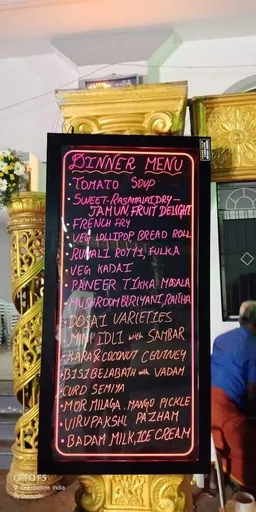 DINNER MENU
• TOMATO SOUP
• SWEET-RASAMALAI,DRY-
JAMUN,FRUIT DELIGHT
• FRENCH FRY
• VEG LOLLIPOP, BREAD ROLL
• RUMALI ROTTY, FULKA
• VEG KADAI
• PANEER TIKKA MASALA
• MUSHROOM BIRIYANI, RAITHA
• DOSAI VARIETIES
• MINI IDLI with SAMBAR
- KARA & COCONUT CHUTNEY
• BISIBELABATH with VADAM
• CURD SEMIYA
• MOR MILAGA, MANGO PICKLE
• VIRUPAKSHI PAZHAM
• BADAM MILK, ICE CREAM
OPPO F5
Coimbatore, India